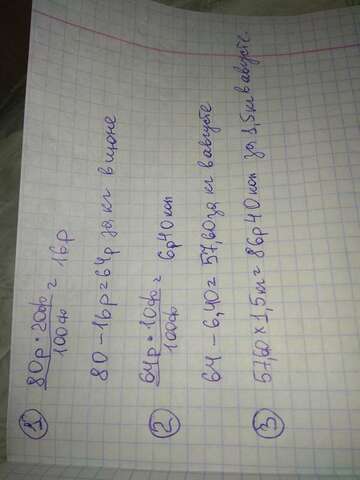 ① 80р · 20% / 100% = 16р
80 - 16р = 64р за кг в июне
② 64р · 10% / 100% = 6р40коп
64 - 6,40 = 57,60 за кг в августе
③ 57,60 × 1,5кг = 86р40коп за 1,5кг в августе.